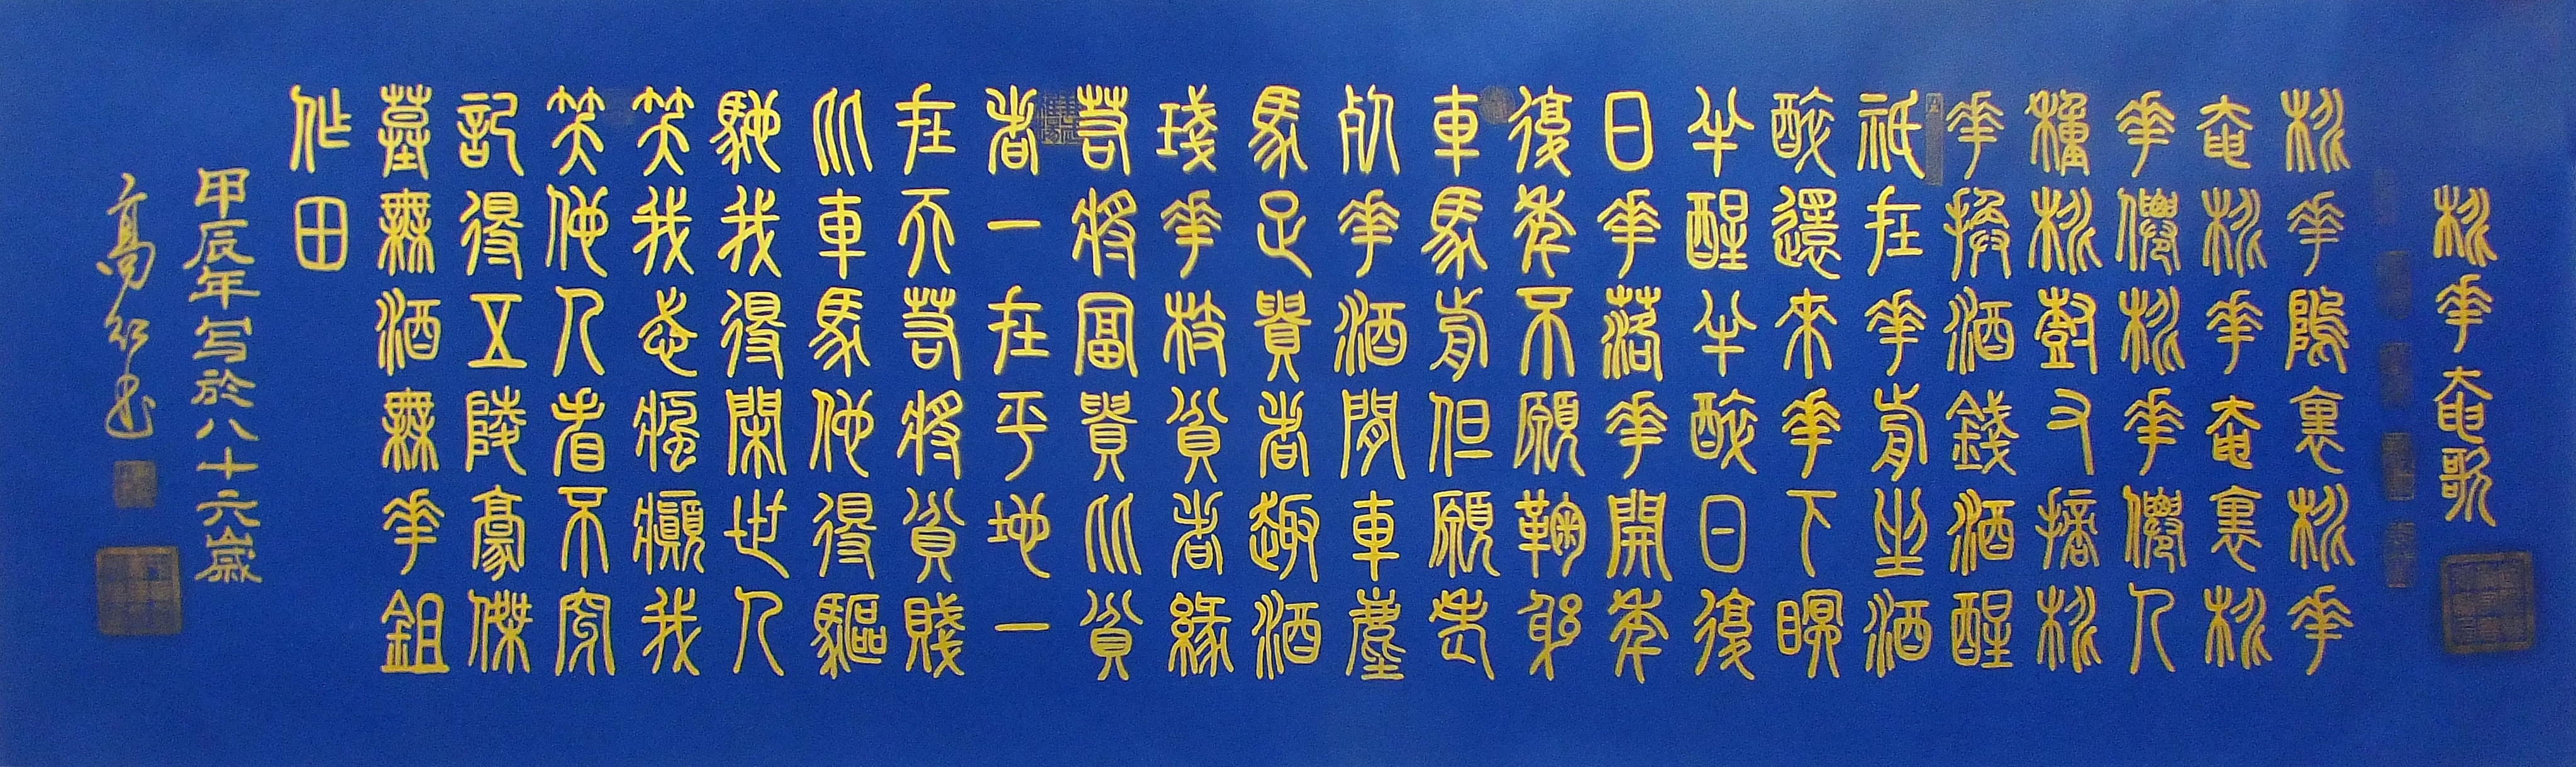 桃花奄歌
桃花隖裏桃花
奄桃花奄裏桃
花僊桃花僊人
穜桃尌又摘桃
花換酒錢酒醒
祇在花前坐酒
醉還來花下眠
半醒半醉日復
日花落花開年
復年不願鞠躬
車馬前但願老
死花酒間車塵
馬足貴者趣酒
琖花枝貧者緣
若將富貴比貧
者一在平地一
在天若將貧賤
比車馬他得驅
馳我得閑世人
笑我忒瘋癲我
笑他人看不穿
記得五陵豪傑
墓無酒無花鉏
作田
甲辰年写於八十六歲
高书